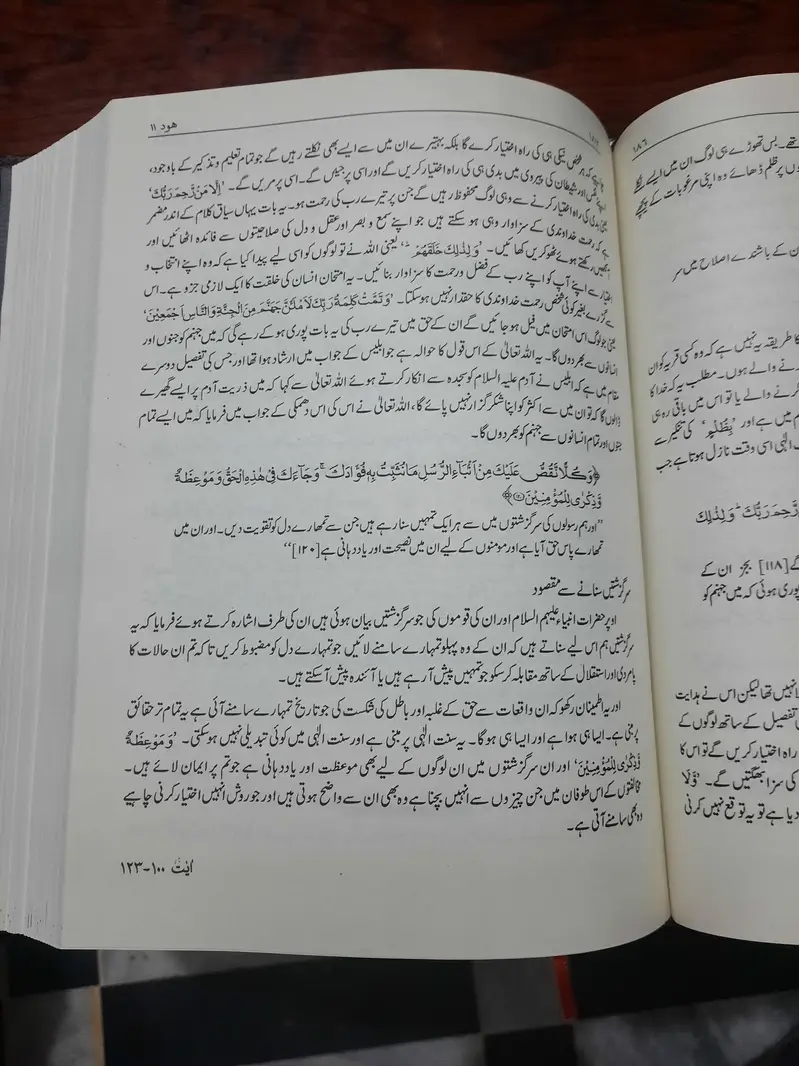 ھود ۱۱
ہر شخص نیکی ہی کی راہ اختیار کرے گا بلکہ بہتیرے ان میں سے ایسے بھی نکلتے رہیں گے جو تمام تعلیم و تذکیر کے باوجود،
اپنے نفس اور شیطان کی پیروی میں بدی ہی کی راہ اختیار کریں گے اور اسی پر جئیں گے۔ اسی پر مریں گے۔ ’اِلَّا مَنْ رَّحِمَ رَبُّكَ‘
یعنی بدی کی راہ اختیار کرنے سے وہی لوگ محفوظ رہیں گے جن پر تیرے رب کی رحمت ہو۔ یہ بات یہاں سیاق کلام کے اندر مضمر
ہے کہ رحمت خداوندی کے سزاوار وہی ہو سکتے ہیں جو اپنے سمع و بصر اور عقل و دل کی صلاحیتوں سے فائدہ اٹھائیں اور
آنکھیں رکھتے ہوئے ٹھوکریں نہ کھائیں۔ ’وَلِذٰلِكَ خَلَقَهُمْ‘ یعنی اللہ نے تو لوگوں کو اسی لیے پیدا کیا ہے کہ وہ اپنے انتخاب و
اختیار سے اپنے آپ کو اپنے رب کے فضل و رحمت کا سزاوار بنائیں۔ یہ امتحان انسان کی خلقت کا ایک لازمی جزو ہے۔ اس
سے گزرے بغیر کوئی شخص رحمت خداوندی کا حقدار نہیں ہو سکتا۔ ’وَتَمَّتْ كَلِمَةُ رَبِّكَ لَاَمْلَـَٔنَّ جَهَنَّمَ مِنَ الْجِنَّةِ وَالنَّاسِ اَجْمَعِيْنَ‘
یعنی جو لوگ اس امتحان میں فیل ہو جائیں گے ان کے حق میں تیرے رب کی یہ بات پوری ہو کے رہے گی کہ میں جہنم کو جنوں اور
انسانوں سے بھر دوں گا۔ یہ اللہ تعالٰی کے اس قول کا حوالہ ہے جو ابلیس کے جواب میں ارشاد ہوا تھا اور جس کی تفصیل دوسرے
مقام میں ہے کہ ابلیس نے آدم علیہ السلام کو سجدہ سے انکار کرتے ہوئے اللہ تعالٰی سے کہا کہ میں ذریت آدم پر ایسے گھیرے
ڈالوں گا کہ تو ان میں سے اکثر کو اپنا شکرگزار نہیں پائے گا، اللہ تعالٰی نے اس کی اس دھمکی کے جواب میں فرمایا کہ میں ایسے تمام
جنوں اور تمام انسانوں سے جہنم کو بھر دوں گا۔
﴿وَكُلًّا نَّقُصُّ عَلَيْكَ مِنْ اَنْۢبَآءِ الرُّسُلِ مَا نُثَبِّتُ بِهٖ فُؤَادَكَ ۚ وَجَآءَكَ فِيْ هٰذِهِ الْحَقُّ وَمَوْعِظَةٌ
وَّذِكْرٰى لِلْمُؤْمِنِيْنَ﴾
”اور ہم رسولوں کی سرگزشتوں میں سے ہر ایک تمہیں سنا رہے ہیں جن سے تمھارے دل کو تقویت دیں۔ اور ان میں
تمھارے پاس حق آیا ہے اور مومنوں کے لیے ان میں نصیحت اور یاددہانی ہے [۱۲۰]“
سرگزشتیں سنانے سے مقصود
اوپر حضرات انبیاء علیہم السلام اور ان کی قوموں کی جو سرگزشتیں بیان ہوئی ہیں ان کی طرف اشارہ کرتے ہوئے فرمایا کہ یہ
سرگزشتیں ہم اس لیے سناتے ہیں کہ ان کے وہ پہلو تمہارے سامنے لائیں جو تمہارے دل کو مضبوط کریں تاکہ تم ان حالات کا
پامردی اور استقلال کے ساتھ مقابلہ کر سکو جو تمہیں پیش آ رہے ہیں یا آئندہ پیش آ سکتے ہیں۔
اور یہ اطمینان رکھو کہ ان واقعات سے حق کے غلبہ اور باطل کی شکست کی جو تاریخ تمہارے سامنے آئی ہے یہ تمام تر حقائق
پر مبنی ہے۔ ایسا ہی ہوا ہے اور ایسا ہی ہو گا۔ یہ سنت الٰہی پر مبنی ہے اور سنت الٰہی میں کوئی تبدیلی نہیں ہو سکتی۔ ’وَمَوْعِظَةٌ
وَّذِكْرٰى لِلْمُؤْمِنِيْنَ‘ اور ان سرگزشتوں میں ان لوگوں کے لیے بھی موعظت اور یاددہانی ہے جو تم پر ایمان لائے ہیں۔
مخالفتوں کے اس طوفان میں جن چیزوں سے انہیں بچنا ہے وہ بھی ان سے واضح ہوتی ہیں اور جو روش انہیں اختیار کرنی چاہیے
وہ بھی سامنے آتی ہے۔
اٰیٰت ۱۰۰-۱۲۳
۱۸۶
تھے۔ بس تھوڑے ہی لوگ ان میں ایسے نکلے
پر ظلم ڈھائے وہ اپنی مرغوبات کے پیچھے
کے باشندے اصلاح میں سر
کا طریقہ یہ نہیں ہے کہ وہ کسی قریہ کو ان
کرنے والے ہوں۔ مطلب یہ کہ خدا کا
کرنے والے یا تو اس میں باقی رہ ہی
میں ہے اور ’بِظُلْمٍ‘ کی تنکیر سے
الٰہی اسی وقت نازل ہوتا ہے جب
رَّحِمَ رَبُّكَ ۭ وَلِذٰلِكَ
گے [۱۱۸] بجز ان کے
پوری ہوئی کہ میں جہنم کو
نہیں تھا لیکن اس نے ہدایت
تفصیل کے ساتھ لوگوں کے
راہ اختیار کریں گے تو اس کا
کی سزا بھگتیں گے۔ ’وَّلَا
دیا ہے تو یہ توقع نہیں کرنی